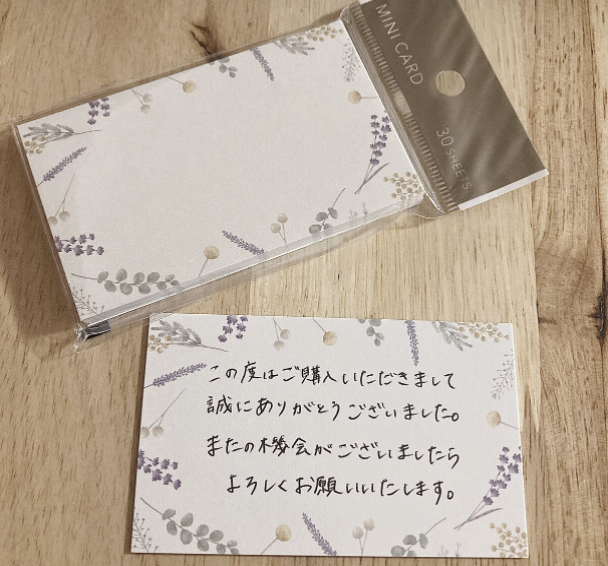 MINI CARD
30 SHEETS
この度はご購入いただきまして
誠にありがとうございました。
またの機会がございましたら
よろしくお願いいたします。